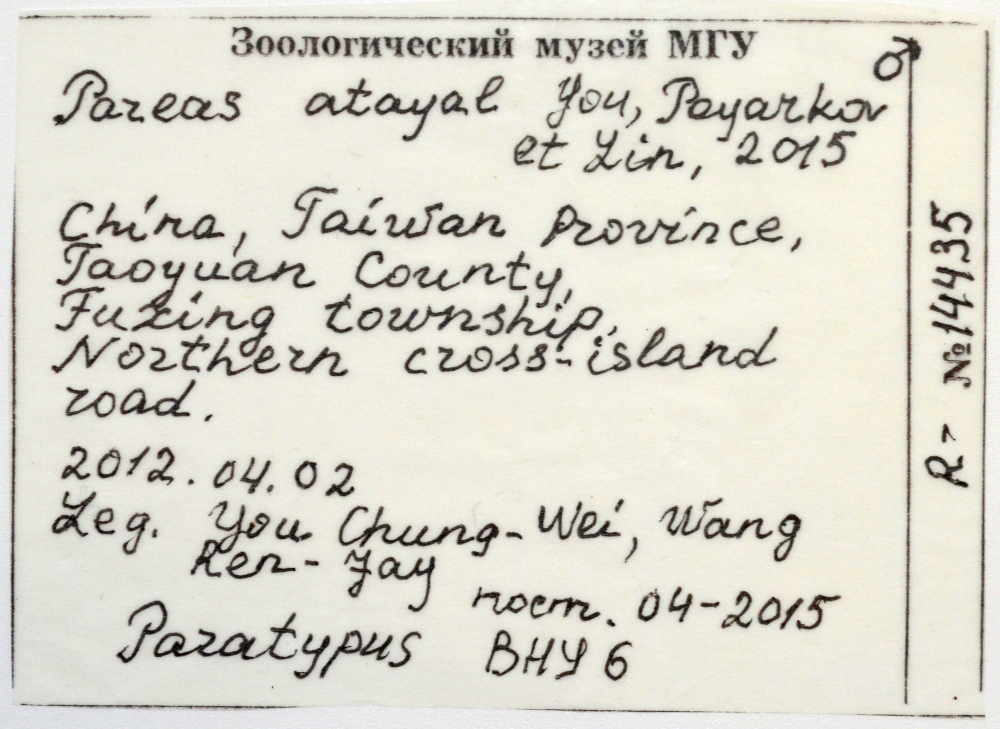 Зоологический музей МГУ
♂
Pareas atayal You, Poyarkov
et Lin, 2015
China, Taiwan Province,
Taoyuan County,
Fuxing township,
Northern cross-island
road.
2012.04.02
Leg. You Chung-Wei, Wang
Ren-Jay
пост. 04-2015
Paratypus ВНУ 6
R- №14435